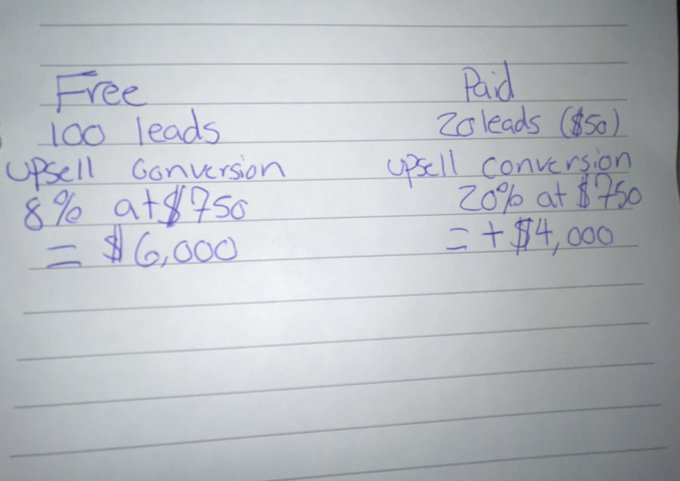 Free
100 leads
Upsell Conversion
8% at $750
= $6,000
Paid
20 leads ($50)
upsell conversion
20% at $750
= + $4,000